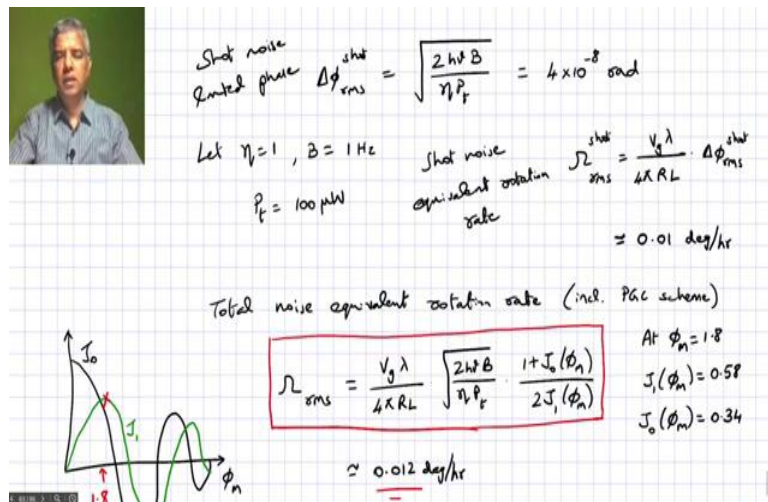 Shot noise
limited phase Δφ_rms^shot = √(2hνB / ηP_t) = 4×10^-8 rad
Let η=1, B=1Hz
P_t = 100 μW
Shot noise
equivalent rotation
rate
Ω_rms^shot = V_g λ / 4πRL · Δφ_rms^shot
≈ 0.01 deg/hr
Total noise equivalent rotation rate (incl. PGC scheme)
Ω_rms = V_g λ / 4πRL √(2hνB / ηP_t) · 1+J_0(φ_m) / 2J_1(φ_m)
At φ_m=1.8
J_1(φ_m)=0.58
J_0(φ_m)=0.34
≈ 0.012 deg/hr
J_0
J_1
φ_m
1.8